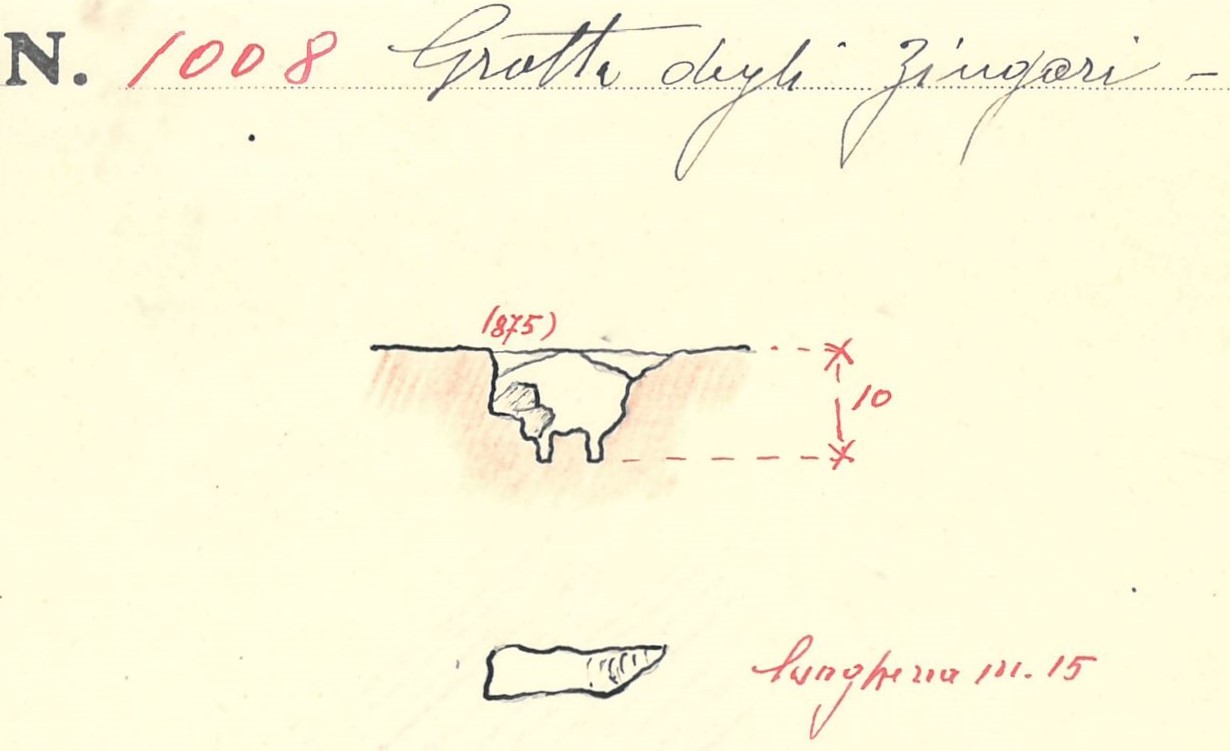 N. 1008 Grotta degli Zingari -
(875)
10
lunghezza m. 15